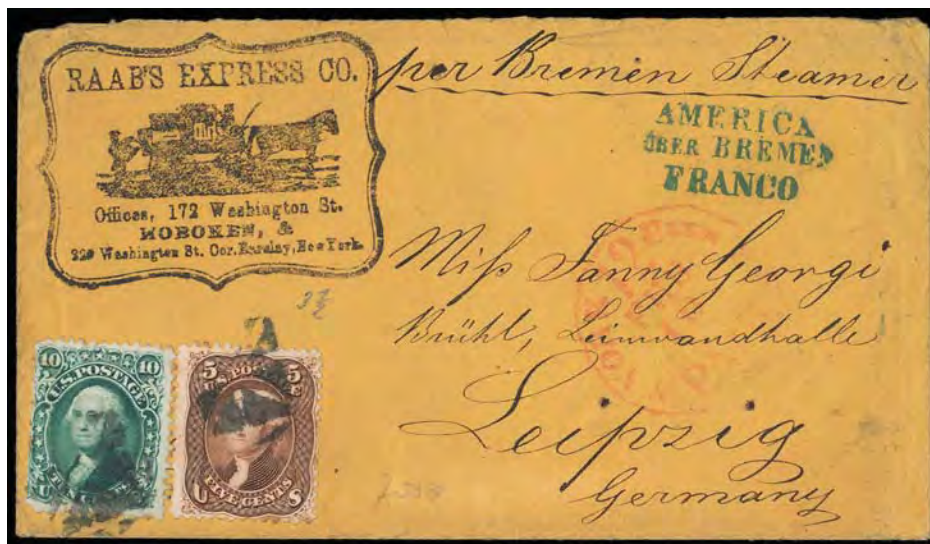 RAAB'S EXPRESS CO.
Offices, 172 Washington St.
HOBOKEN, &
229 Washington St. Cor. Barclay, New York.
per Bremen Steamer
AMERICA
ÜBER BREMEN
FRANCO
Miſs Fanny Georgi
Brühl, Leinwandhalle
Leipzig
Germany
10 10
U.S. POSTAGE
TEN CENTS
U
5 5
U.S. POSTAGE
FIVE CENTS
U S